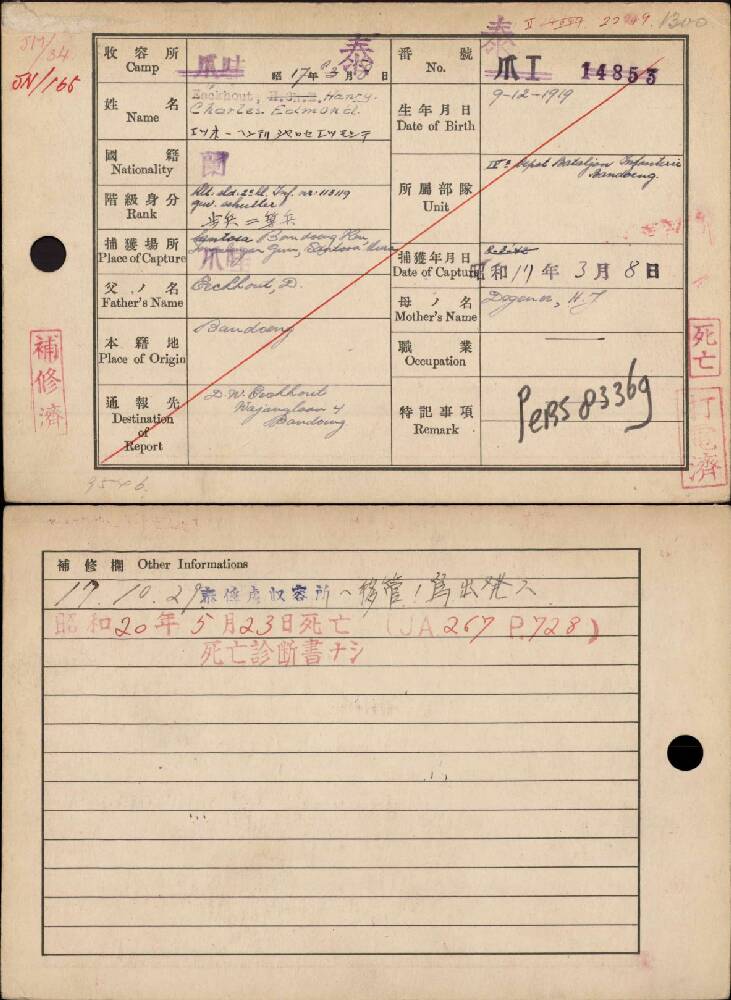 JM/34
JN/166
1300
泰
泰
收容所 Camp
爪哇
昭17年 3月 8日
番號 No.
爪I 14853
姓名 Name
Eeckhout, Hanry.
Charles Edmond.
生年月日 Date of Birth
9-12-1919
國籍 Nationality
蘭
所屬部隊 Unit
Depot Bataljon Infanterie
Bandoeng
階級身分 Rank
Mil. sld. 2e kl. Inf. nr. 118119
gew. schutter
捕獲場所 Place of Capture
Bandoeng
爪哇
捕獲年月日 Date of Capture
昭和17年3月8日
父ノ名 Father's Name
Eeckhout, D.
母ノ名 Mother's Name
本籍地 Place of Origin
Bandoeng
職業 Occupation
通報先 Destination of Report
D. W. Eeckhout
Bandoeng
特記事項 Remark
PeRS 83369
補修濟
死亡
打電濟
補修欄 Other Informations
17 10.29 泰俘虜収容所へ移管ノ爲出発ス
昭和20年5月23日死亡 (JA.267 P.728)
死亡診断書ナシ